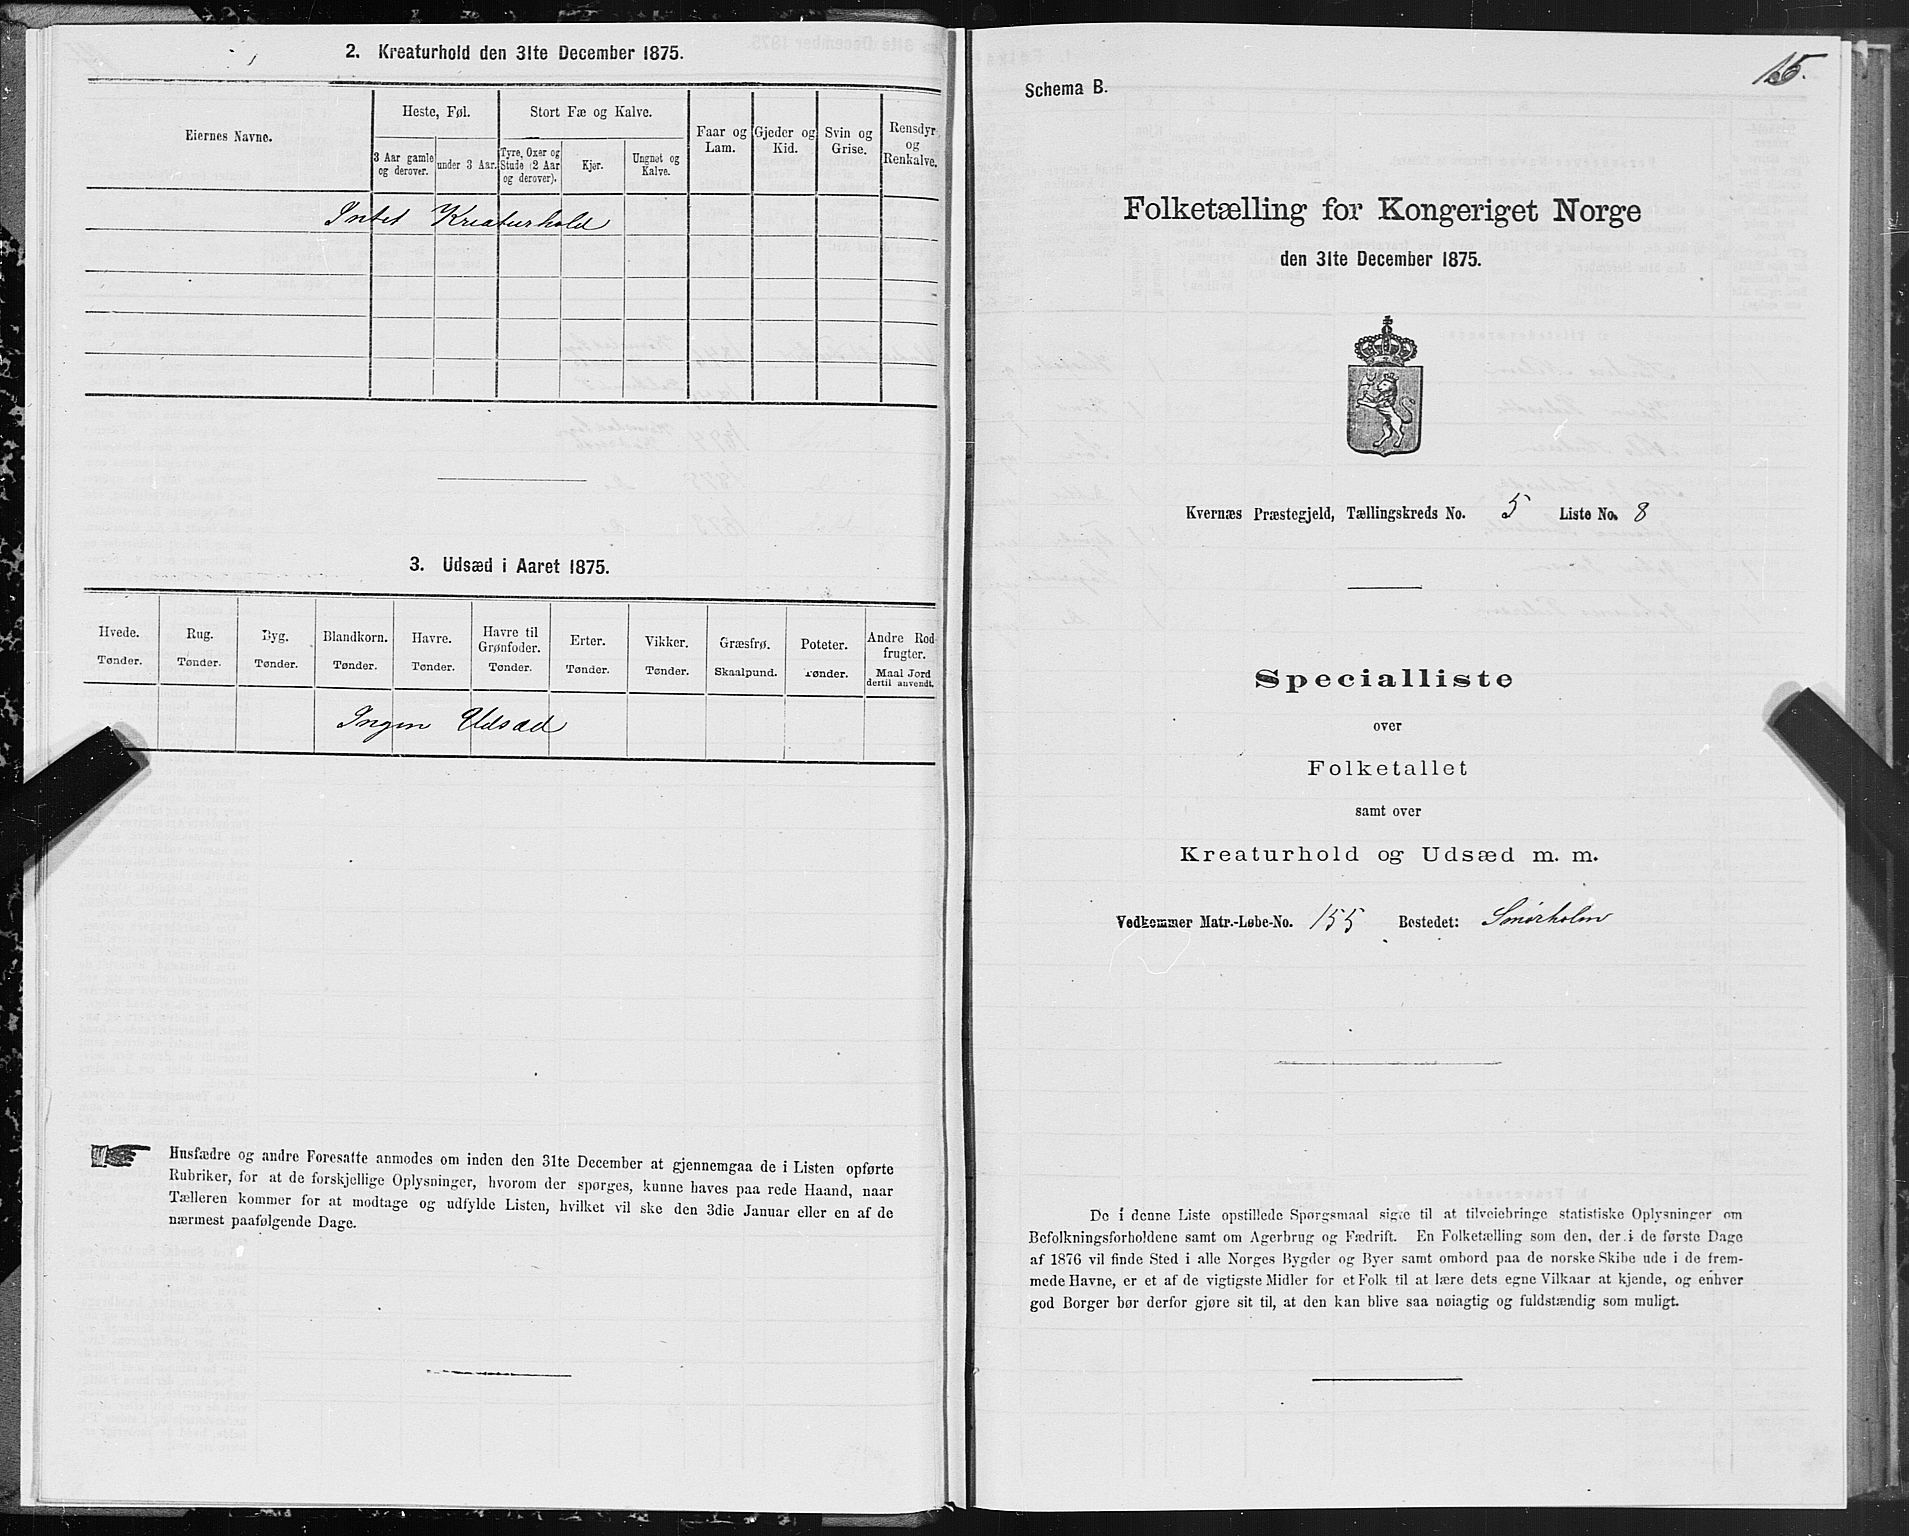 2. Kreaturhold den 31te December 1875.
Eiernes Navne.
Heste, Føl.
3 Aar gamle og derover.
under 3 Aar.
Stort Fæ og Kalve.
Tyre, Oxer og Stude (2 Aar og derover).
Kjør.
Ungnøt og Kalve.
Faar og Lam.
Gjeder og Kid.
Svin og Grise.
Rensdyr og Renkalve.
Intet Kreaturhold
3. Udsæd i Aaret 1875.
Hvede. Tønder.
Rug. Tønder.
Byg. Tønder.
Blandkorn. Tønder.
Havre. Tønder.
Havre til Grønfoder. Tønder.
Erter. Tønder.
Vikker. Tønder.
Græsfrø. Skaalpund.
Poteter. Tønder.
Andre Rodfrugter. Maal Jord dertil anvendt.
Ingen Udsæd
Husfædre og andre Foresatte anmodes om inden den 31te December at gjennemgaa de i Listen opførte
Rubriker, for at de forskjellige Oplysninger, hvorom der spørges, kunne haves paa rede Haand, naar
Tælleren kommer for at modtage og udfylde Listen, hvilket vil ske den 3die Januar eller en af de
nærmest paafølgende Dage.
15.
Schema B.
Folketælling for Kongeriget Norge
den 31te December 1875.
Kvernæs Præstegjeld, Tællingskreds No. 5 Liste No. 8
Specialliste
over
Folketallet
samt over
Kreaturhold og Udsæd m. m.
Vedkommer Matr.-Løbe-No. 155 Bostedet: Smørholm
De i denne Liste opstillede Spørgsmaal sigte til at tilveiebringe statistiske Oplysninger om
Befolkningsforholdene samt om Agerbrug og Fædrift. En Folketælling som den, der i de første Dage
af 1876 vil finde Sted i alle Norges Bygder og Byer samt ombord paa de norske Skibe ude i de frem-
mede Havne, er et af de vigtigste Midler for et Folk til at lære dets egne Vilkaar at kjende, og enhver
god Borger bør derfor gjøre sit til, at den kan blive saa nøiagtig og fuldstændig som muligt.